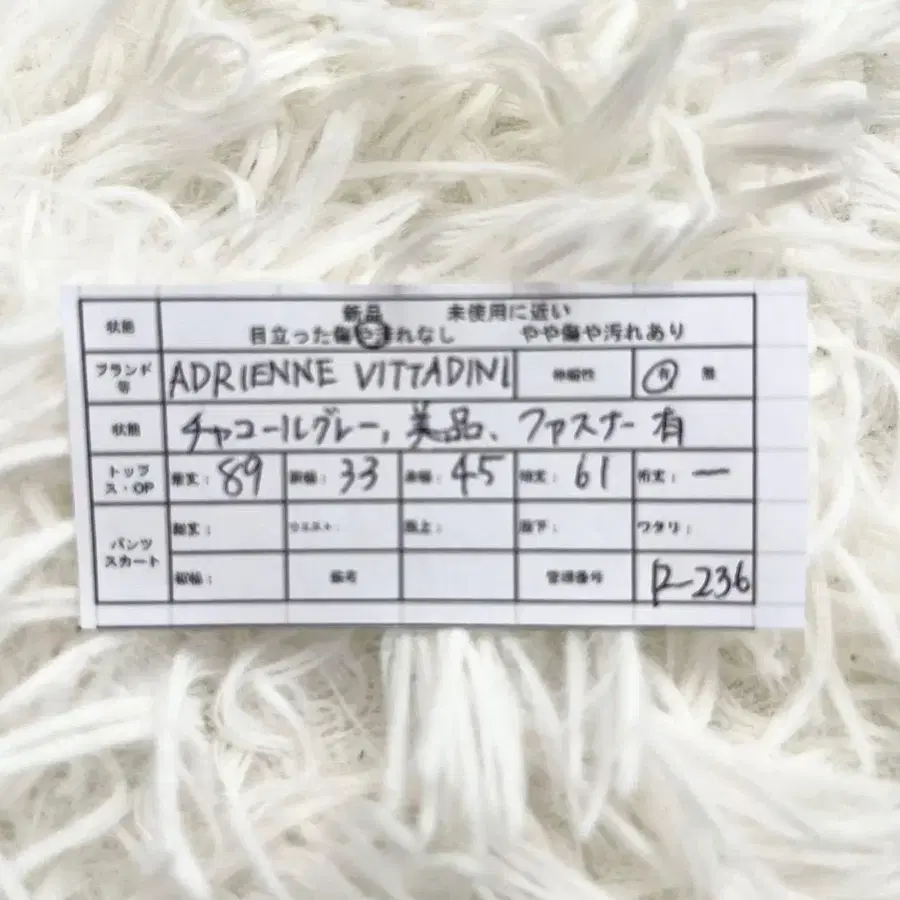 状態 新品 未使用に近い
目立った傷や汚れなし やや傷や汚れあり
ブランド等 ADRIENNE VITTADINI 伸縮性 有 無
状態 チャコールグレー, 美品、ファスナー有
トップス・OP 着丈: 89 肩幅: 33 身幅: 45 袖丈: 61 裄丈: ー
パンツスカート 総丈: ウエスト: 股上: 股下: ワタリ:
裾幅: 備考 管理番号 R-236